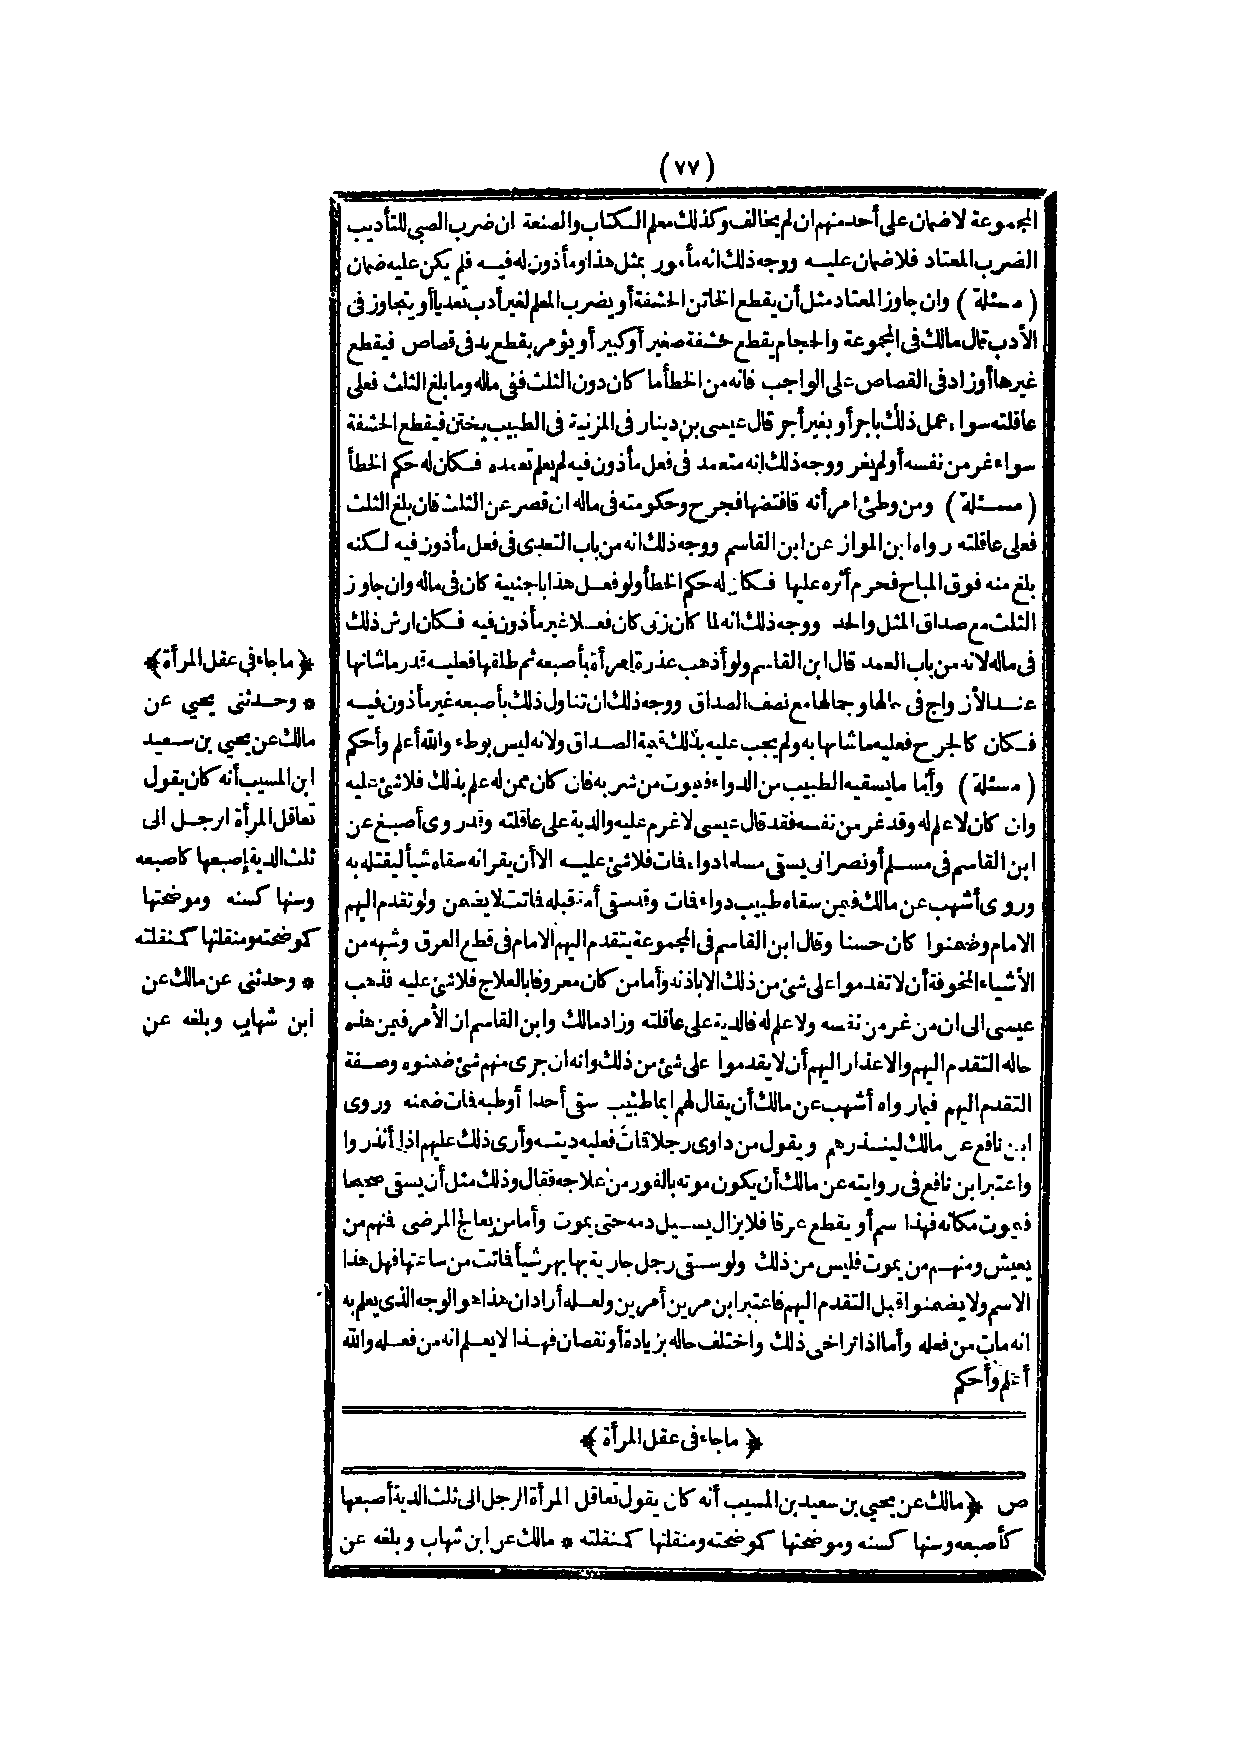 (٧٧)
المجموعة لا ضمان على أحد منهم ان لم يخالف وكذلك معلم الكتاب والصنعة ان ضرب الصبى للتأديب
الضرب المعتاد فلا ضمان عليه ووجه ذلك انه مأمور بمثل هذا ومأذون له فيه فلم يكن عليه ضمان
( مسئلة ) وان جاوز المعتاد مثل أن يقطع الخاتن الحشفة أو يضرب المعلم لغير أدب تعديا أو يتجاوز فى
الأدب قال مالك فى المجموعة والحجام يقطع حشفة صغير أو كبير أو يؤمر بقطع يد فى قصاص فيقطع
غيرها أو زاد فى القصاص على الواجب فانه من الخطأ ما كان دون الثلث ففى ماله وما بلغ الثلث فعلى
عاقلته سواء عمل ذلك بأجر أو بغير أجر قال عيسى بن دينار فى المزنية فى الطبيب يختن فيقطع الحشفة
سواء غر من نفسه أو لم يغر ووجه ذلك انه متعمد فى فعل مأذون فيه لم يعلم تعمده فكان له حكم الخطأ
( مسئلة ) ومن وطئ امرأته فافتضها فجرح وحكومته فى ماله ان قصر عن الثلث فان بلغ الثلث
فعلى عاقلته رواه ابن المواز عن ابن القاسم ووجه ذلك انه من باب التعدى فى فعل مأذون فيه لكنه
بلغ منه فوق المباح فحرم أثره عليها فكان له حكم الخطأ ولو فعل هذا باجنبية كان فى ماله وان جاوز
الثلث مع صداق المثل والحد ووجه ذلك انه لما كان زنى كان فعلا غير مأذون فيه فكان ارش ذلك
فى ماله لانه من باب العمد قال ابن القاسم ولو أذهب عذرة امرأة بأصبعه ثم طلقها فعليه قدر ما شانها
عند الأزواج فى حالها وجمالها مع نصف الصداق ووجه ذلك ان تناول ذلك بأصبعه غير مأذون فيه
فكان كالجرح فعليه ما شانها به ولم يجب عليه بذلك قيمة الصداق ولانه ليس بوطء والله أعلم وأحكم
( مسئلة ) وأما ما يسقيه الطبيب من الدواء فيموت من شربه فان كان ممن له علم بذلك فلا شئ عليه
وان كان لا علم له وقد غر من نفسه فقد قال عيسى لا غرم عليه والدية على عاقلته وقد روى أصبغ عن
ابن القاسم فى مسلم أو نصرانى يسقى مسلما دواء فمات فلا شئ عليه الا أن يقر انه سقاه شيأ ليقتله به
وروى أشهب عن مالك فيمن سقاه طبيب دواء فمات وقد سقى أمة قبله فماتت لا يضمن ولو تقدم اليهم
الامام وضمنوا كان حسنا وقال ابن القاسم فى المجموعة يتقدم اليهم الامام فى قطع العرق وشبهه من
الأشياء المخوفة أن لا تقدموا على شئ من ذلك الا باذنه وأما من كان معروفا بالعلاج فلا شئ عليه فذهب
عيسى الى ان من غر من نفسه ولا علم له فالدية على عاقلته وزاد مالك وابن القاسم ان الأمر فيمن هذه
حاله التقدم اليهم والاعذار اليهم أن لا يقدموا على شئ من ذلك وانه ان جرى منهم شئ ضمنوه وصفة
التقدم اليهم فيما رواه أشهب عن مالك أن يقال لهم ايما طبيب سقى أحدا أو طبه فمات ضمنه وروى
ابن نافع عن مالك لينذرهم ويقول من داوى رجلا فمات فعليه ديته وأرى ذلك عليهم اذا أنذروا
واعتبر ابن نافع فى روايته عن مالك أن يكون موته بالفور من علاجه فقال وذلك مثل أن يسقى صحيحا
فيموت مكانه فهذا سم أو يقطع عرقا فلا يزال يسيل دمه حتى يموت وأما من يعالج المرضى فمنهم من
يعيش ومنهم من يموت فليس من ذلك ولو سقى رجل جارية بها بهر شيأ فماتت من ساعتها فهل هذا
الاسم ولا يضمنوا قبل التقدم اليهم فاعتبر ابن مرين أمرين ولعله أراد ان هذا هو الوجه الذى يعلم به
انه مات من فعله وأما اذا تراخى ذلك واختلف حاله بزيادة أو نقصان فهذا لا يعلم انه من فعله والله
أعلم وأحكم
﴿ ما جاء فى عقل المرأة ﴾
ص ﴿ مالك عن يحيى بن سعيد بن المسيب أنه كان يقول تعاقل المرأة الرجل الى ثلث الدية أصبعها
كأصبعه وسنها كسنه وموضحتها كموضحته ومنقلتها كمنقلته * مالك عن ابن شهاب وبلغه عن
﴿ ما جاء فى عقل المرأة ﴾
* وحدثنى يحيى عن
مالك عن يحيى بن سعيد
ابن المسيب أنه كان يقول
تعاقل المرأة الرجل الى
ثلث الدية إصبعها كاصبعه
وسنها كسنه وموضحتها
كموضحته ومنقلتها كمنقلته
* وحدثنى عن مالك عن
ابن شهاب وبلغه عن